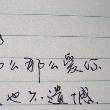 那么那么爱你
也不遗憾